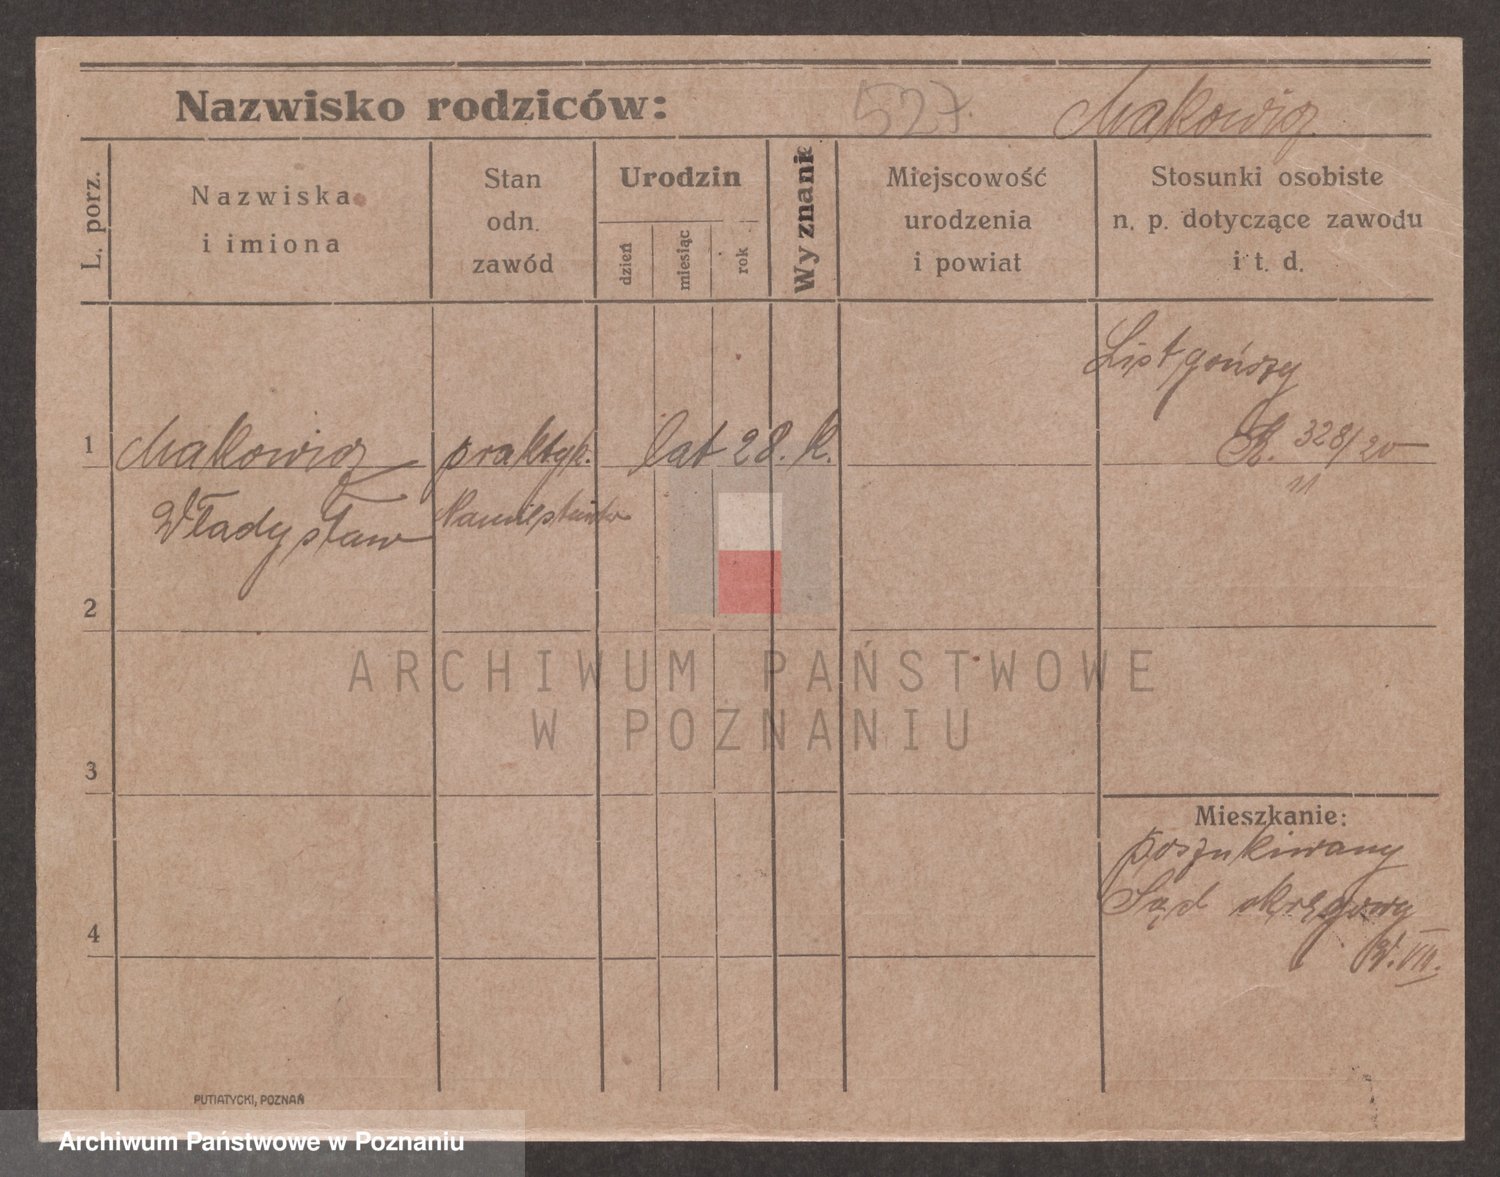 Nazwisko rodziców: 527. Makowicz
L. porz.
Nazwiska
i imiona
Stan
odn.
zawód
Urodzin
dzień
miesiąc
rok
Wyznanie
Miejscowość
urodzenia
i powiat
Stosunki osobiste
n. p. dotyczące zawodu
i t. d.
List gończy
1 Makowicz praktyk. lat 28. k. R. 328/20
11
Władysław Namiestnictwa
2
ARCHIWUM PAŃSTWOWE
W POZNANIU
3
Mieszkanie:
poszukiwany
Sąd okręgowy
4
W. VII.
PUTIATYCKI, POZNAŃ
Archiwum Państwowe w Poznaniu